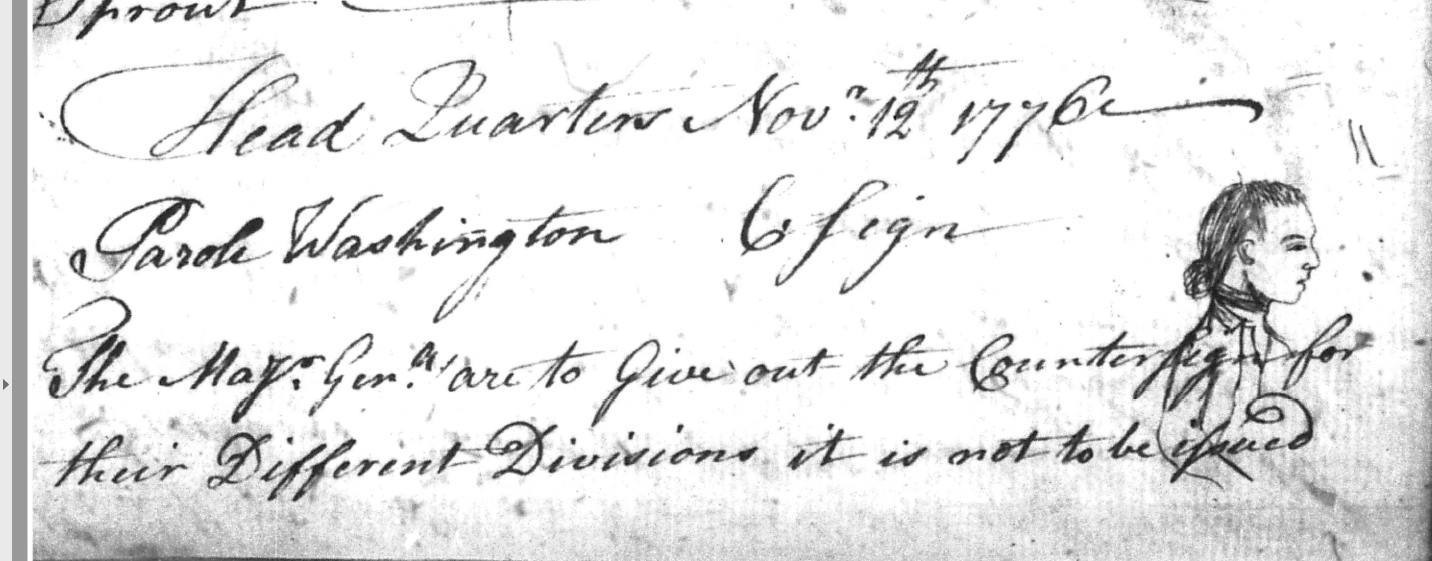 Sprout
Head Quarters Novr. 12th 1776
Parole Washington C Sign
The Majr. Genls are to Give out the Countersign for
their Different Divisions it is not to be issued